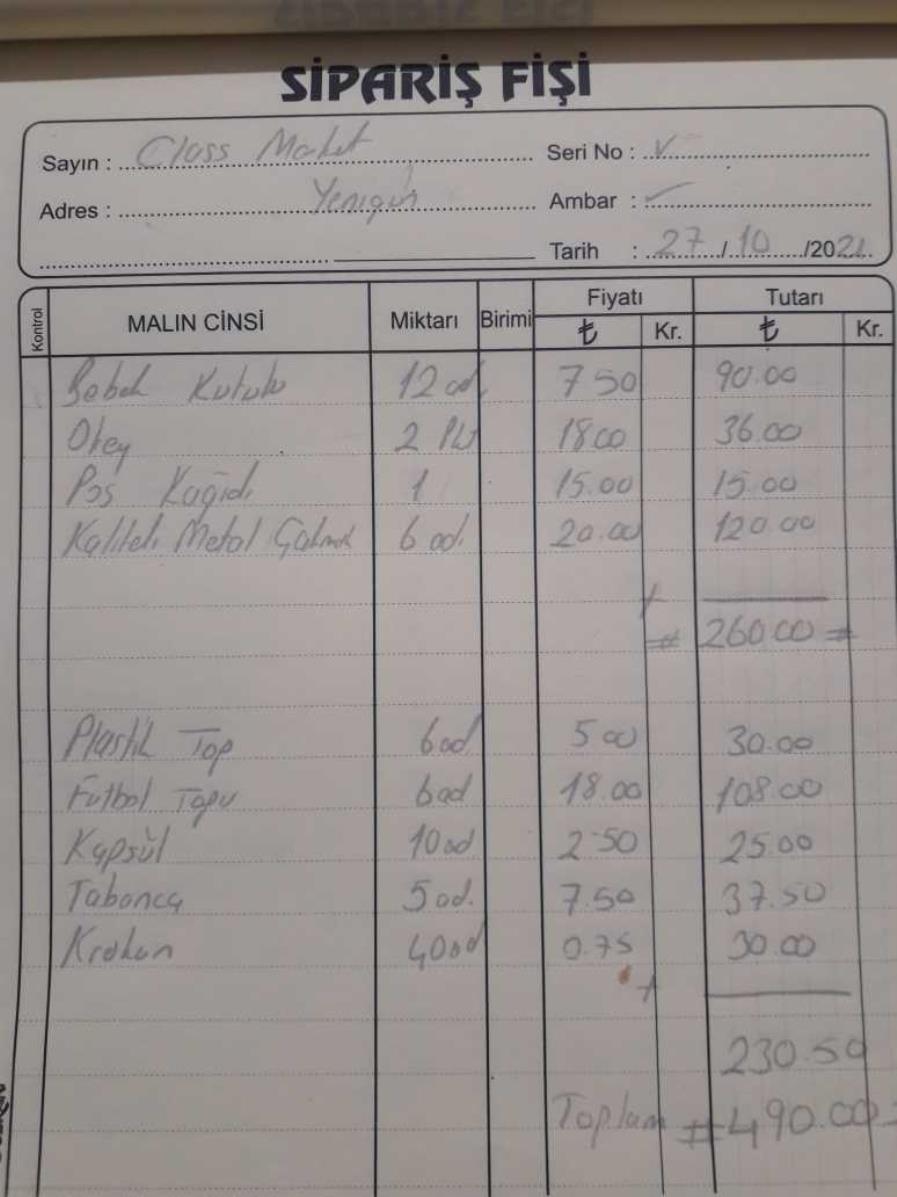 SİPARİŞ FİŞİ
Sayın : Class Maket Seri No :
Adres : Yenigün Ambar :
Tarih : 27/10/2021
Kontrol MALIN CİNSİ Miktarı Birimi Fiyatı Tutarı
₺ Kr. ₺ Kr.
Bebek Kutulu 12 ad. 7 50 90.00
Okey 2 Pkt 18 00 36.00
Pos Kağıdı 1 15.00 15.00
Kaliteli Metal Çakmak 6 ad. 20.00 120.00
+
# 260 00 #
Plastik Top 6 ad 5 00 30.00
Futbol Topu 6 ad 18.00 108.00
Kapsül 10 ad 2.50 25.00
Tabanca 5 ad. 7.50 37.50
40 ad 0.75 30.00
+
230.50
Toplam #490.00